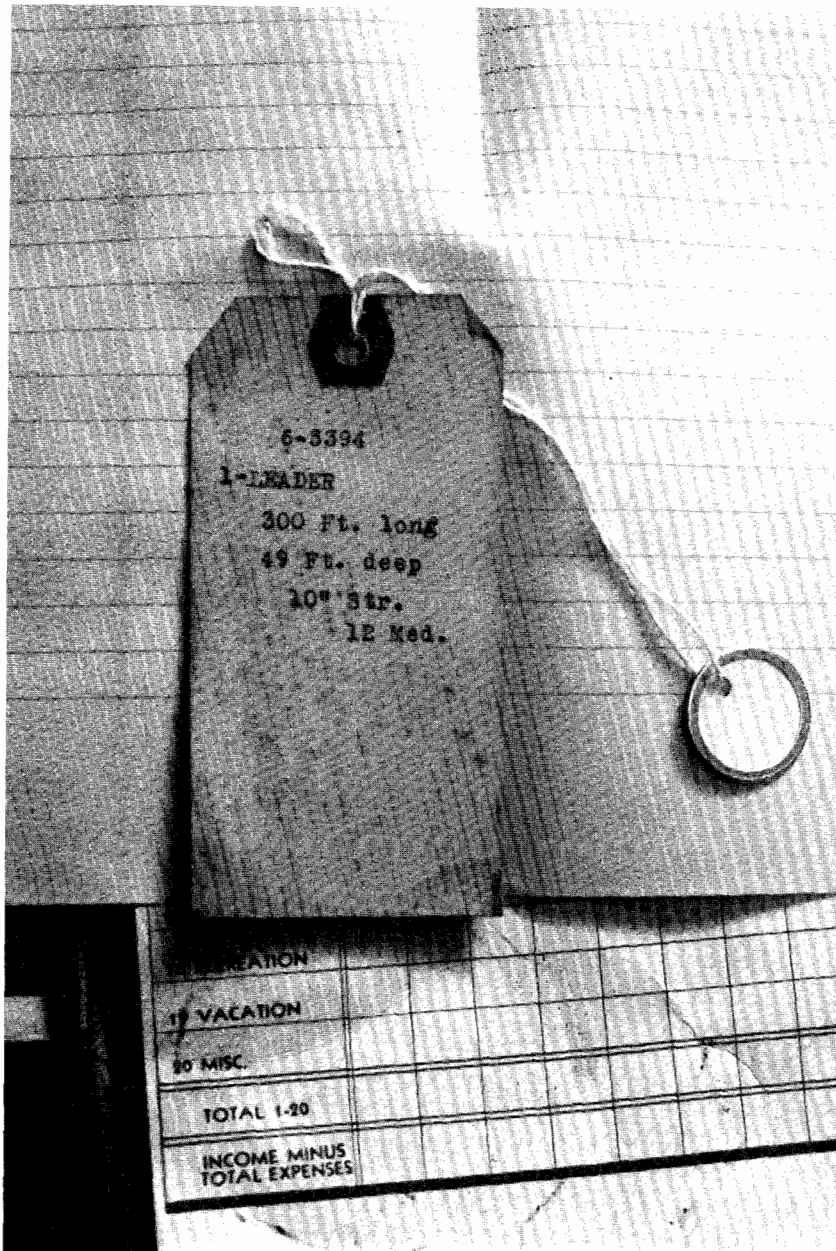 6-3394
1-LEADER
300 Ft. long
49 Ft. deep
10" Str.
12 Med.
19 VACATION
20 MISC.
TOTAL 1-20
INCOME MINUS
TOTAL EXPENSES